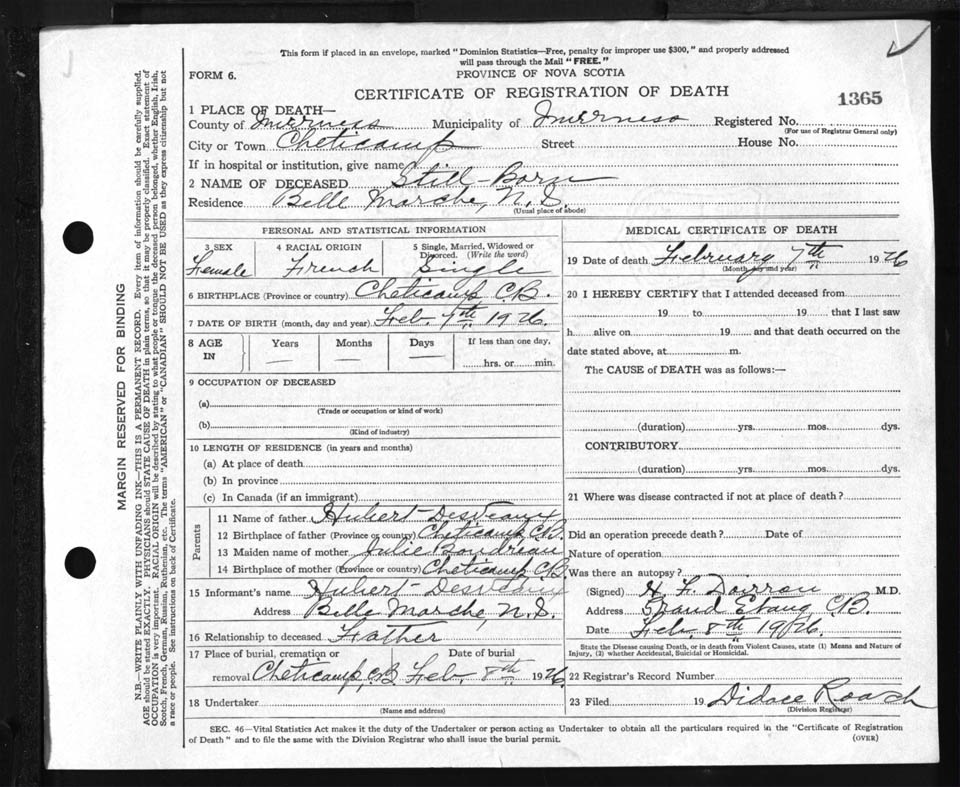 This form if placed in an envelope, marked "Dominion Statistics—Free, penalty for improper use $300," and properly addressed
will pass through the Mail "FREE."
FORM 6.
PROVINCE OF NOVA SCOTIA
CERTIFICATE OF REGISTRATION OF DEATH
1365
1 PLACE OF DEATH—
County of Inverness Municipality of Inverness Registered No.
(For use of Registrar General only)
City or Town Cheticamp Street House No.
If in hospital or institution, give name
2 NAME OF DECEASED Still-Born
Residence Belle Marche, N.S.
(Usual place of abode)
MARGIN RESERVED FOR BINDING
N.B.—WRITE PLAINLY WITH UNFADING INK—THIS IS A PERMANENT RECORD. Every item of information should be carefully supplied.
AGE should be stated EXACTLY. PHYSICIANS should STATE CAUSE OF DEATH in plain terms, so that it may be properly classified. Exact statement of
OCCUPATION is very important. RACIAL ORIGIN will be described by stating to what people or tongue the deceased person belonged, whether English, Irish,
Scotch, French, German, Russian, Ruthenian, etc. The terms "AMERICAN" or "CANADIAN" SHOULD NOT BE USED as they express citizenship but not
a race or people. See instructions on back of Certificate.
PERSONAL AND STATISTICAL INFORMATION
3 SEX
Female
4 RACIAL ORIGIN
French
5 Single, Married, Widowed or
Divorced. (Write the word)
Single
6 BIRTHPLACE (Province or country) Cheticamp C.B.
7 DATE OF BIRTH (month, day and year) Feb. 7th 1926.
8 AGE
IN
Years
—
Months
—
Days
—
If less than one day,
hrs. or min.
9 OCCUPATION OF DECEASED
(a)
(Trade or occupation or kind of work)
(b)
(Kind of industry)
10 LENGTH OF RESIDENCE (in years and months)
(a) At place of death
(b) In province
(c) In Canada (if an immigrant)
Parents
11 Name of father Hubert Desveaux
12 Birthplace of father (Province or country) Cheticamp, C.B.
13 Maiden name of mother Julie Boudreau
14 Birthplace of mother (Province or country) Cheticamp C.B.
15 Informant's name Hubert Desveaux
Address Belle Marche, N.S.
16 Relationship to deceased Father
17 Place of burial, cremation or
removal Cheticamp, C.B.
Date of burial
Feb. 8th 1926.
18 Undertaker
(Name and address)
MEDICAL CERTIFICATE OF DEATH
19 Date of death February 7th 1926
(Month, day and year)
20 I HEREBY CERTIFY that I attended deceased from
19 to 19 that I last saw
h alive on 19 and that death occurred on the
date stated above, at m.
The CAUSE of DEATH was as follows:—
(duration) yrs. mos. dys.
CONTRIBUTORY
(duration) yrs. mos. dys.
21 Where was disease contracted if not at place of death?
Did an operation precede death? Date of
Nature of operation
Was there an autopsy?
(Signed) M.D.
Address Grand Etang C.B.
Date Feb. 8th 1926.
State the Disease causing Death, or in death from Violent Causes, state (1) Means and Nature of
Injury, (2) whether Accidental, Suicidal or Homicidal.
22 Registrar's Record Number
23 Filed 19 Didace Roach
(Division Registrar)
SEC. 46—Vital Statistics Act makes it the duty of the Undertaker or person acting as Undertaker to obtain all the particulars required in the "Certificate of Registration
of Death" and to file the same with the Division Registrar who shall issue the burial permit.
(OVER)